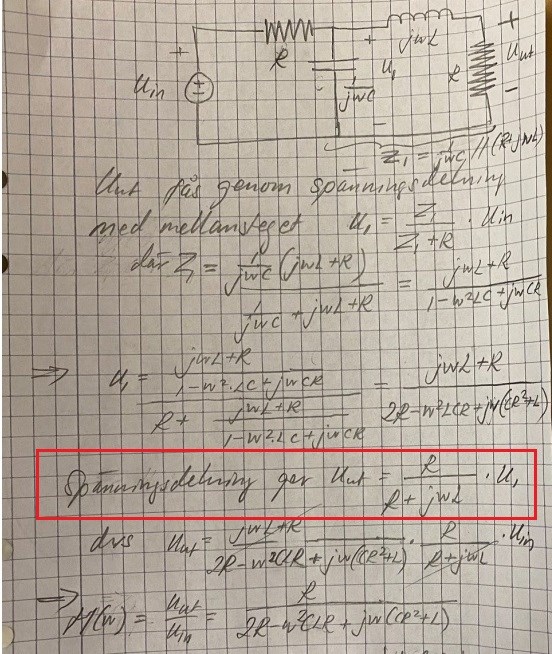 R
+
jωL
+
+
Uin
±
1/jωC
U₁
R
Uut
-
-
Z₁ = 1/jωC // (R+jωL)
Uut fås genom spänningsdelning
med mellansteget U₁ = Z₁/(Z₁+R) · Uin
där Z₁ = (1/jωC (jωL+R))/(1/jωC + jωL+R) = (jωL+R)/(1-ω²LC+jωCR)
=> U₁ = ((jωL+R)/(1-ω²LC+jωCR))/(R + (jωL+R)/(1-ω²LC+jωCR)) = (jωL+R)/(2R-ω²LCR+jω(CR²+L))
Spänningsdelning ger Uut = R/(R+jωL) · U₁
dvs Uut = (jωL+R)/(2R-ω²CLR+jω(CR²+L)) · R/(R+jωL) · Uin
=> H(ω) = Uut/Uin = R/(2R-ω²CLR+jω(CR²+L))